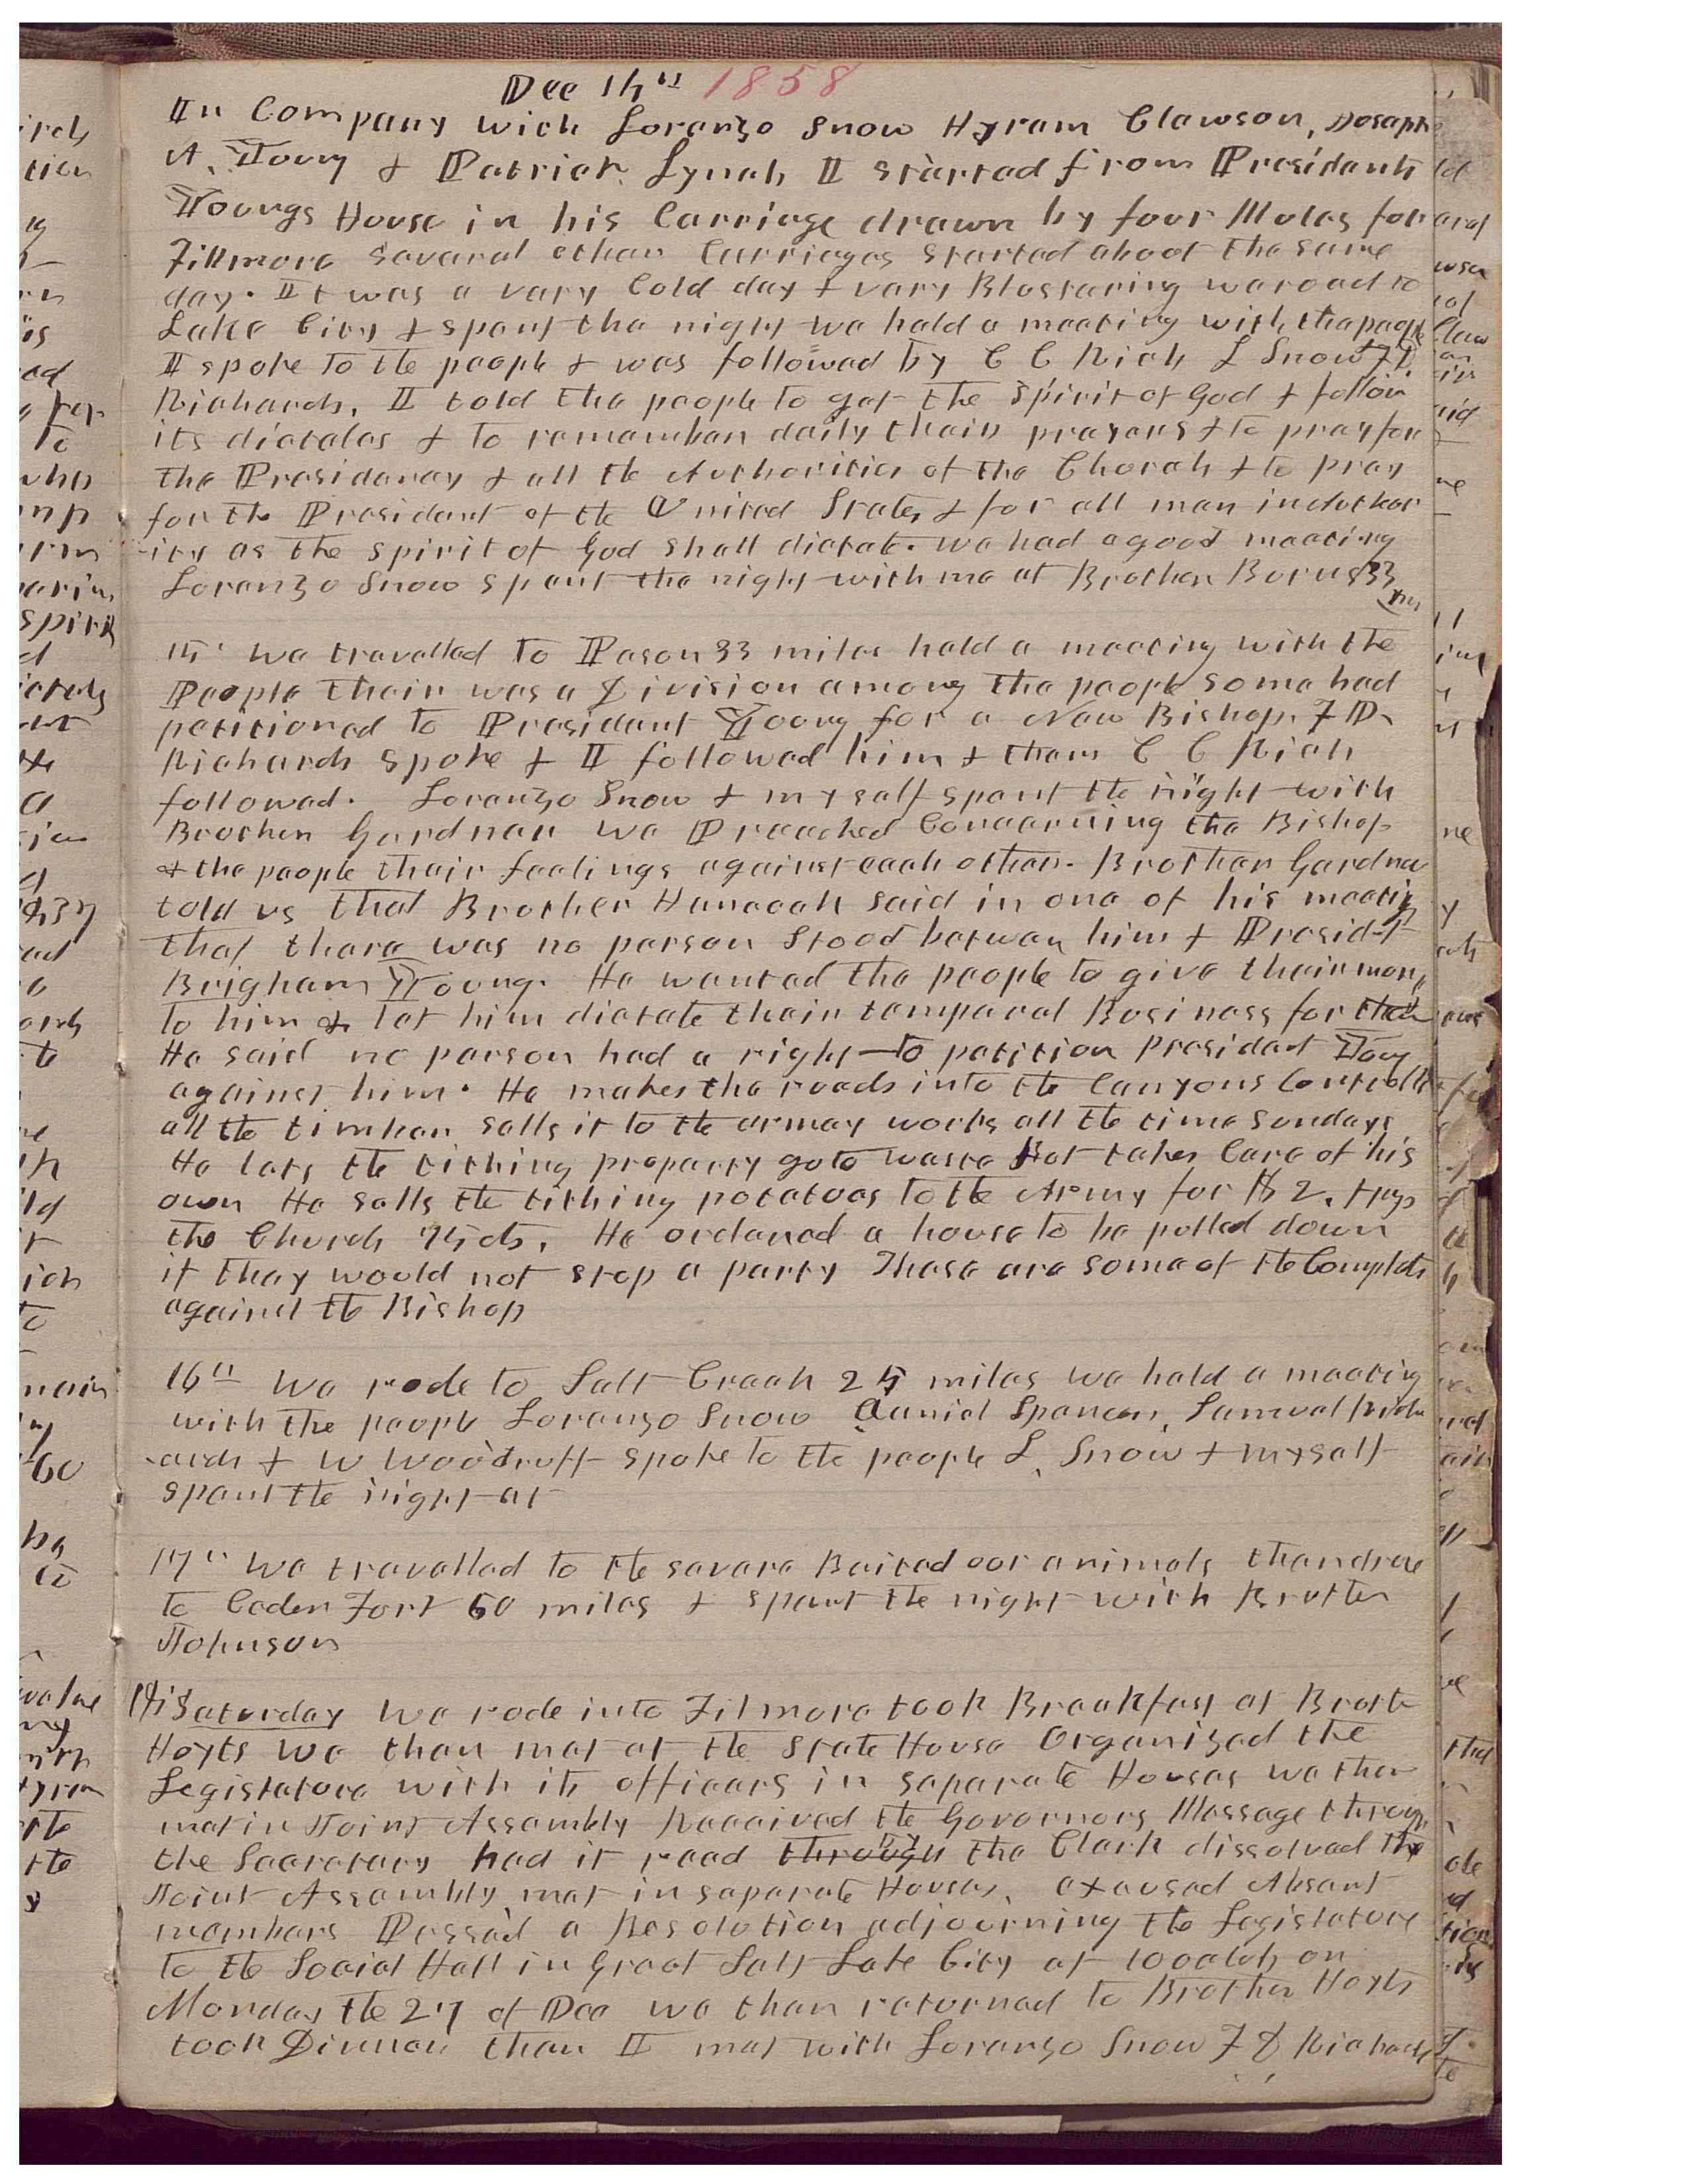 Dec 14th 1858
In Company with Lorenzo Snow Hyram Clawson, Joseph
A. Young & Patrick Lynch I started from Presidents
Youngs House in his Carriage drawn by four Mules for
Fillmore several other Carriages started about the same
day. It was a very Cold day & very Blostering we road to
Lake City & spent the night we held a meeting with the people
I spoke to the people & was followed by C C Rich L Snow F D.
Richards, I told the people to get the spirit of God & follow
its dictates & to remember daily their prayers & to pray for
the Presidency & all the Authorities of the Church & to pray
for the President of the United States & for all men in author
-ity as the spirit of God shall dictate. we had a good meeting
Lorenzo Snow spent the night with me at Brother
33
15 We travelled to Payson 33 miles held a meeting with the
People their was a Division among the people some had
petitioned to President Young for a New Bishop. F D.
Richards spoke & I followed him & then C C Rich
followed. Lorenzo Snow & myself spent the night with
Brother Gardner we Preached Concerning the Bishop
& the people their feelings against each other. Brother Gardner
told us that Brother Hancock said in one of his meeting
that there was no person stood betwen him & Presidet
Brigham Young. He wanted the people to give their money
to him & let him dictate their temperal Business for them
He said no person had a right to petition President Young
against him. He makes the roads into the Canyons Controlls
all the timber sells it to the armey works all the time Sundays
He lets the tithing property go to waste But takes Care of his
own He sells the tithing potatoes to the Army for $2. & pays
the Church 75 cts. He ordered a house to be pulled down
if they would not stop a party These are some of the Complets
against the Bishop
16th We rode to Salt Creek 25 miles we held a meeting
with the people Lorenzo Snow Daniel Spencer, Samuel Rich
-ards & W Woodruff spoke to the people L. Snow & myself
spent the night at
17th We travelled to the severe Baited our animals then drove
to Ceder Fort 60 miles & spent the night with Brother
Johnson
18 Saturday We rode into Filmore took Breakfast at Brother
Hoyts We then met at the State House Organized the
Legislature with its officers in separate Houses we then
met in Joint Assembly Received the Governors Message through
the Secretary had it read through by the Clerk dissolved the
Joint Assembly met in separate Houses. excused Absent
members Passed a Resolution adjourning the Legislature
to the Social Hall in Great Salt Lake City at 10 oclok on
Monday the 27 of Dec we then returned to Brother Hoyts
took Dinner then I met with Lorenzo Snow F D Richards